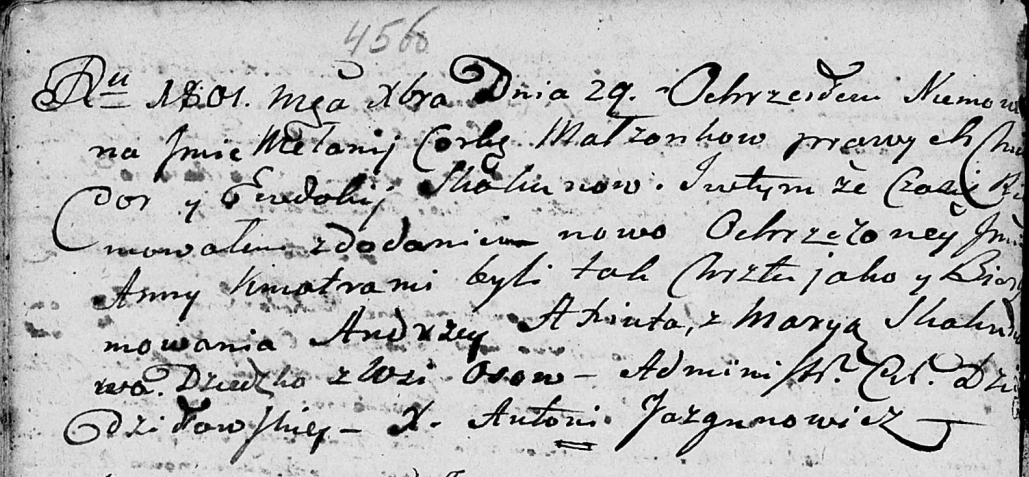 4566
Ru 1801. Mga Xbra Dnia 29. Ochrzciłem Niemow
na Jmie Mełanij Corkę Małzonkow prawych Chwe
dor y Ewdokij Skakunow. Jwtym że Czasie Bi
mowałem zdodaniem nowo Ochrzczoney Jmie
Anny Kmotrami byli tak Chrztu jako y Bierz
mowania Andrzey z Maryą Skakun
wa. Dziedzko zWsi Osow – Administr. Cer. Dzi
dziłowskiey – X. Antoni Jazgunowicz